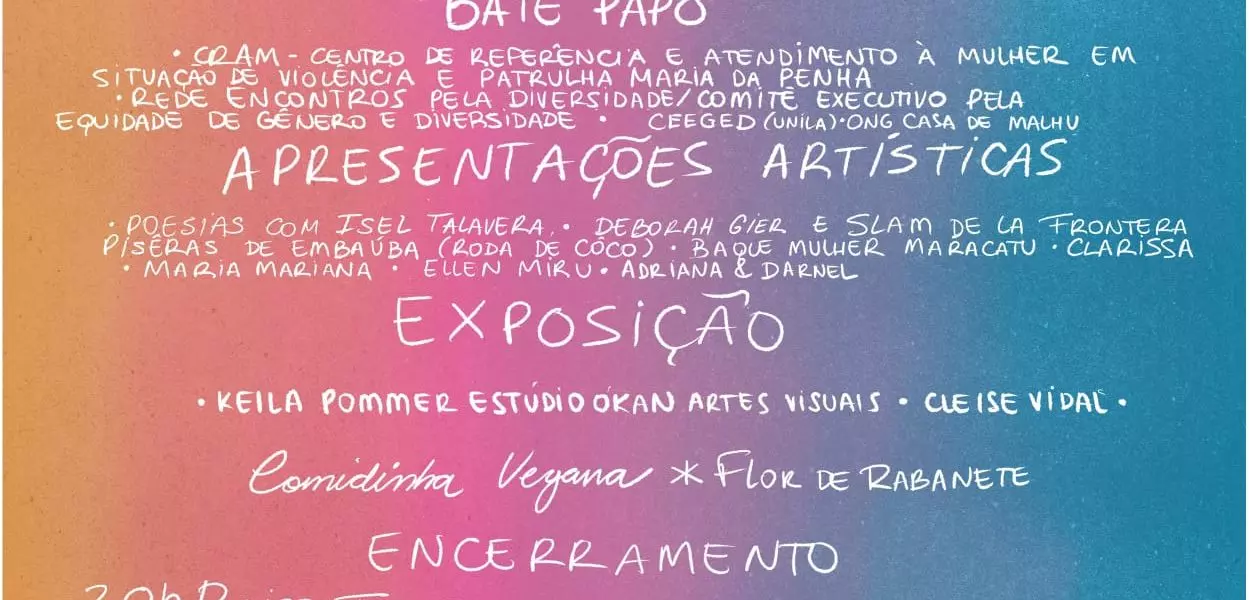 BATE PAPO
• CRAM - CENTRO DE REFERÊNCIA E ATENDIMENTO À MULHER EM
SITUAÇÃO DE VIOLÊNCIA E PATRULHA MARIA DA PENHA
• REDE ENCONTROS PELA DIVERSIDADE/COMITÊ EXECUTIVO PELA
EQUIDADE DE GÊNERO E DIVERSIDADE • CEEGED (UNILA) • ONG CASA DE MALHU
APRESENTAÇÕES ARTÍSTICAS
• POESIAS COM ISEL TALAVERA, • DEBORAH GIER E SLAM DE LA FRONTERA
PISÊRAS DE EMBAÚBA (RODA DE CÔCO) • BAQUE MULHER MARACATU • CLARISSA
• MARIA MARIANA • ELLEN MIRU • ADRIANA & DARNEL
EXPOSIÇÃO
• KEILA POMMER ESTÚDIO ÒKAN ARTES VISUAIS • CLEISE VIDAL •
Comidinha Vegana * FLOR DE RABANETE
ENCERRAMENTO